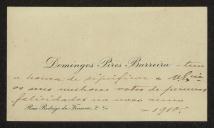 Domingos Pires Barreira - tem
a honra de significar a V. Ex.
os seus melhores votos de perennes
felicidades no novo anno
Rua Rodrigo da Fonseca,
- 1910.